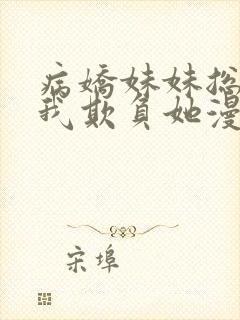 病嬌妹妹总
我欺負她漫
宋埠